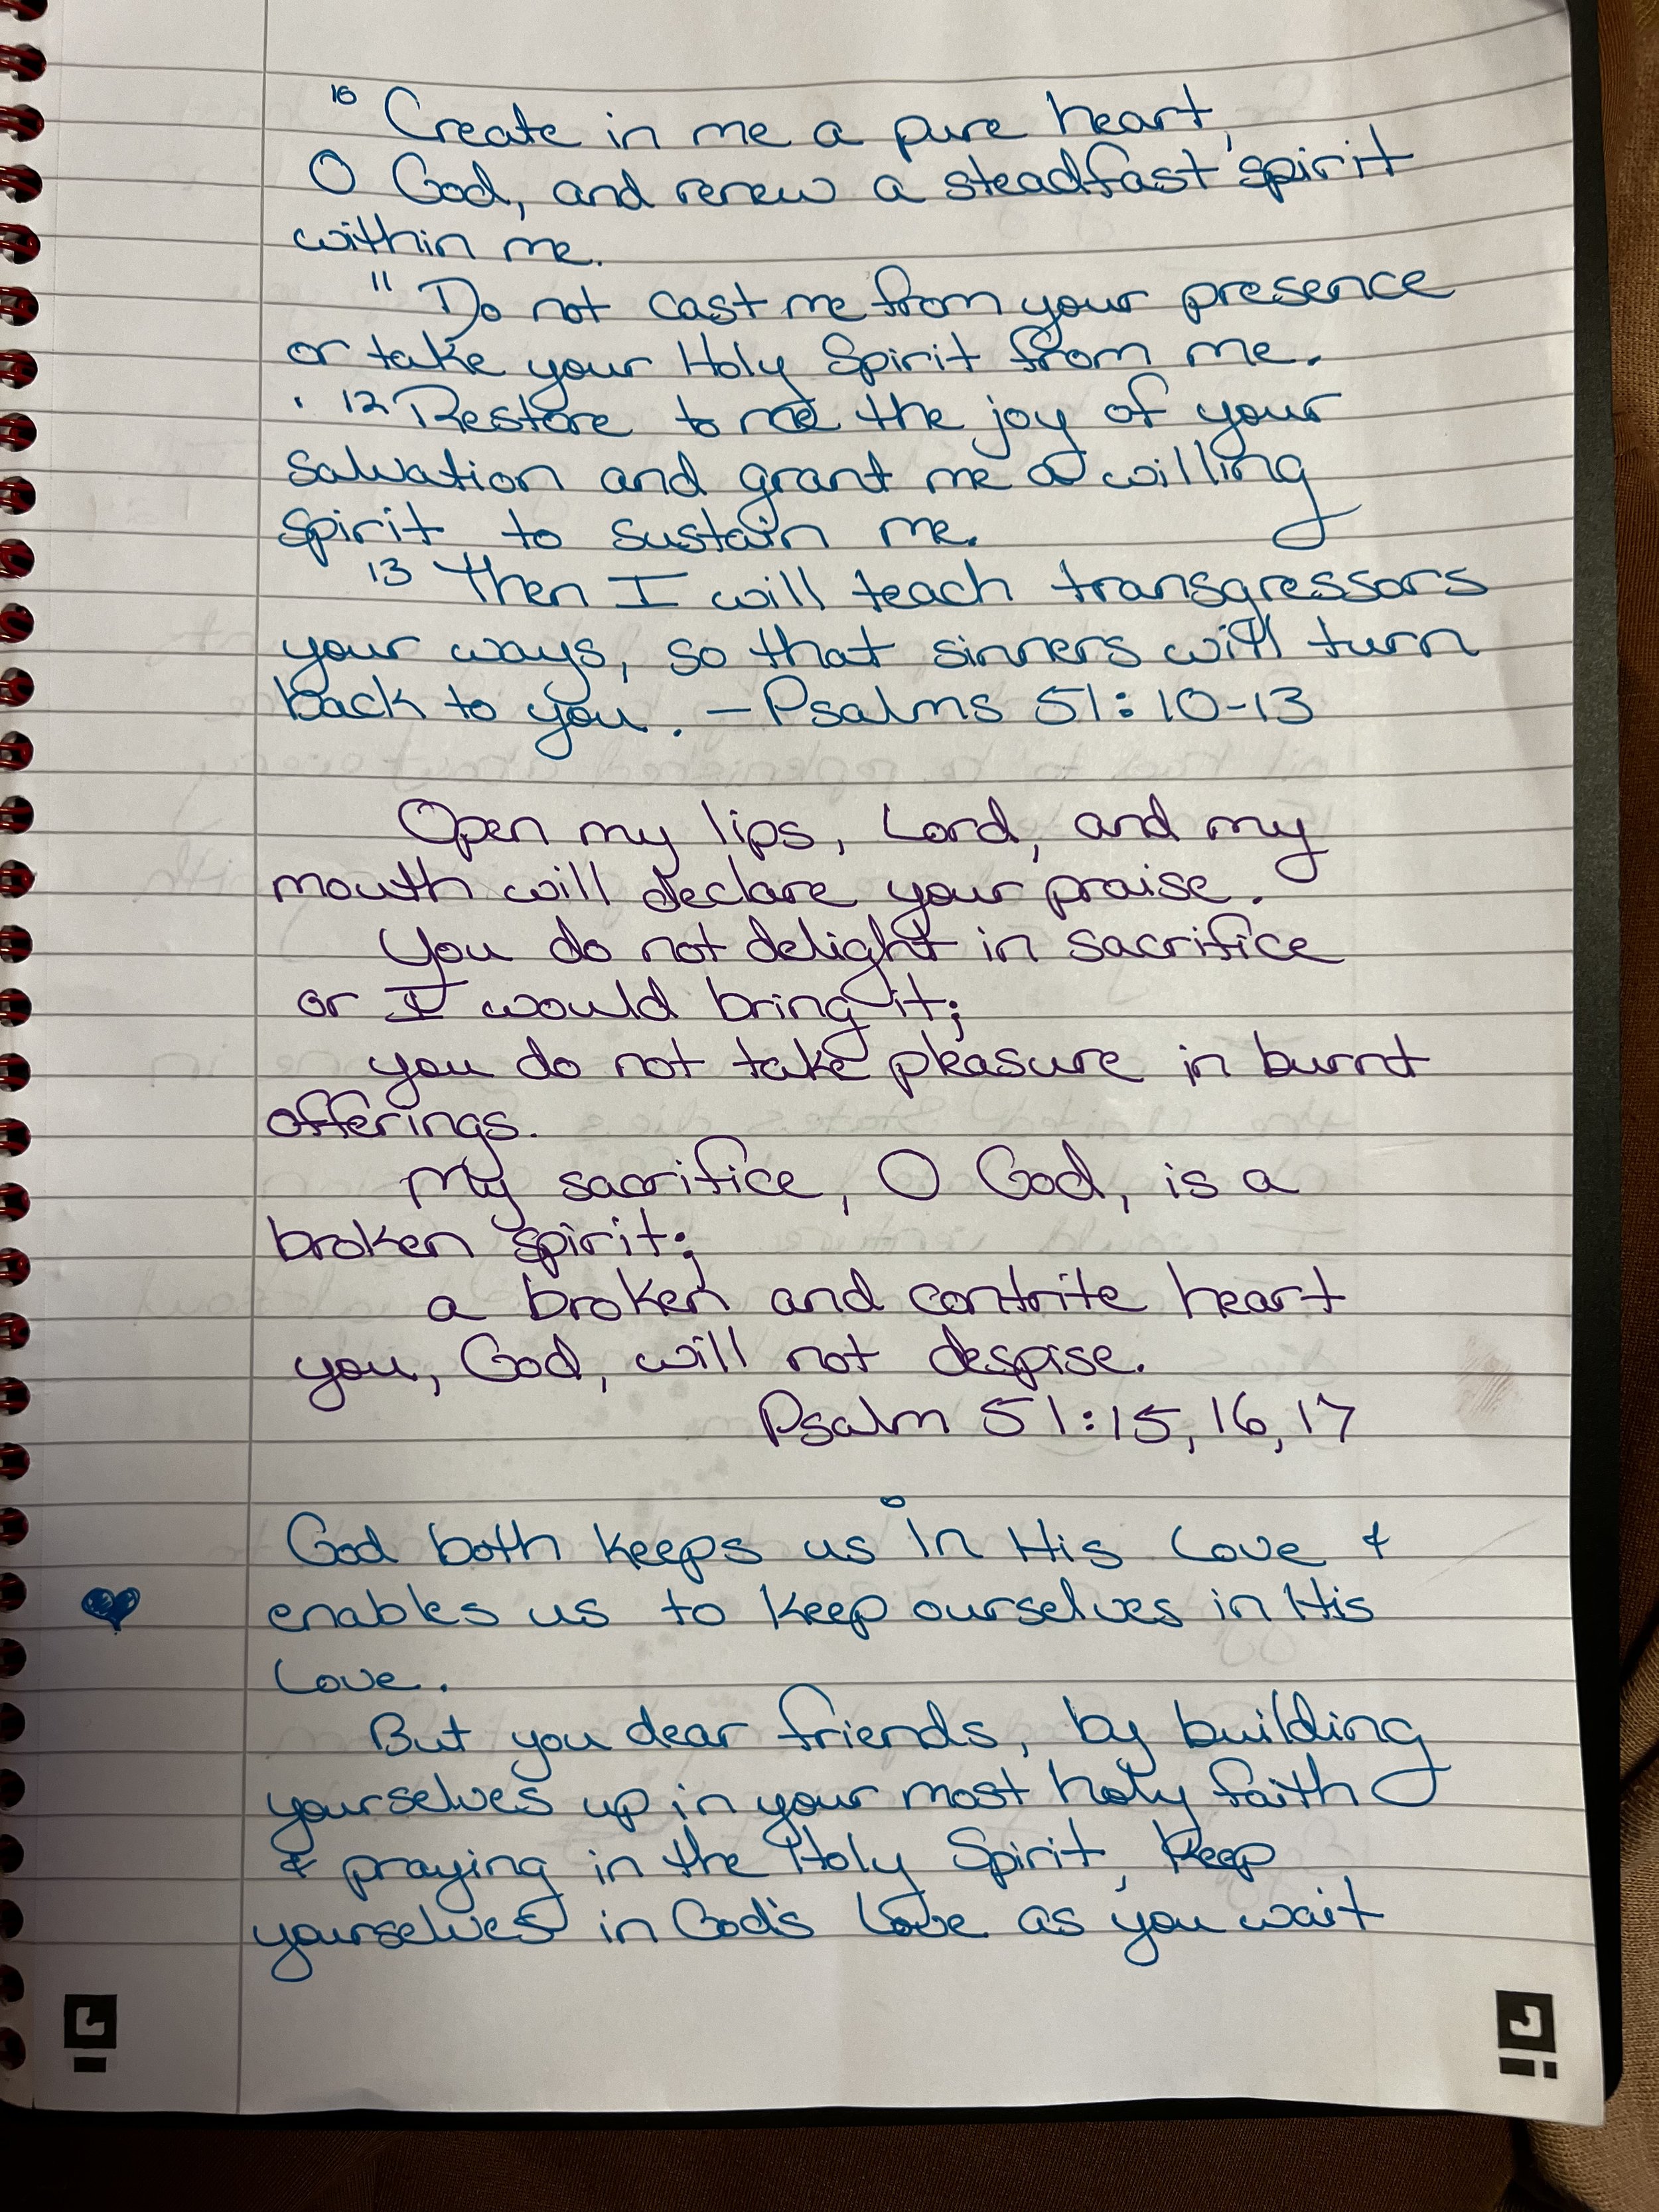 10 Create in me a pure heart,
O God, and renew a steadfast spirit
within me.
11 Do not cast me from your presence
or take your Holy Spirit from me.
12 Restore to me the joy of your
salvation and grant me a willing
spirit to sustain me.
13 Then I will teach transgressors
your ways, so that sinners will turn
back to you. - Psalms 51:10-13
Open my lips, Lord, and my
mouth will declare your praise.
You do not delight in sacrifice
or I would bring it;
you do not take pleasure in burnt
offerings.
My sacrifice, O God, is a
broken spirit;
a broken and contrite heart
you, God, will not despise.
Psalm 51:15, 16, 17
God both keeps us in His Love &
enables us to keep ourselves in His
Love.
But you dear friends, by building
yourselves up in your most holy faith
& praying in the Holy Spirit, keep
yourselves in God's Love as you wait